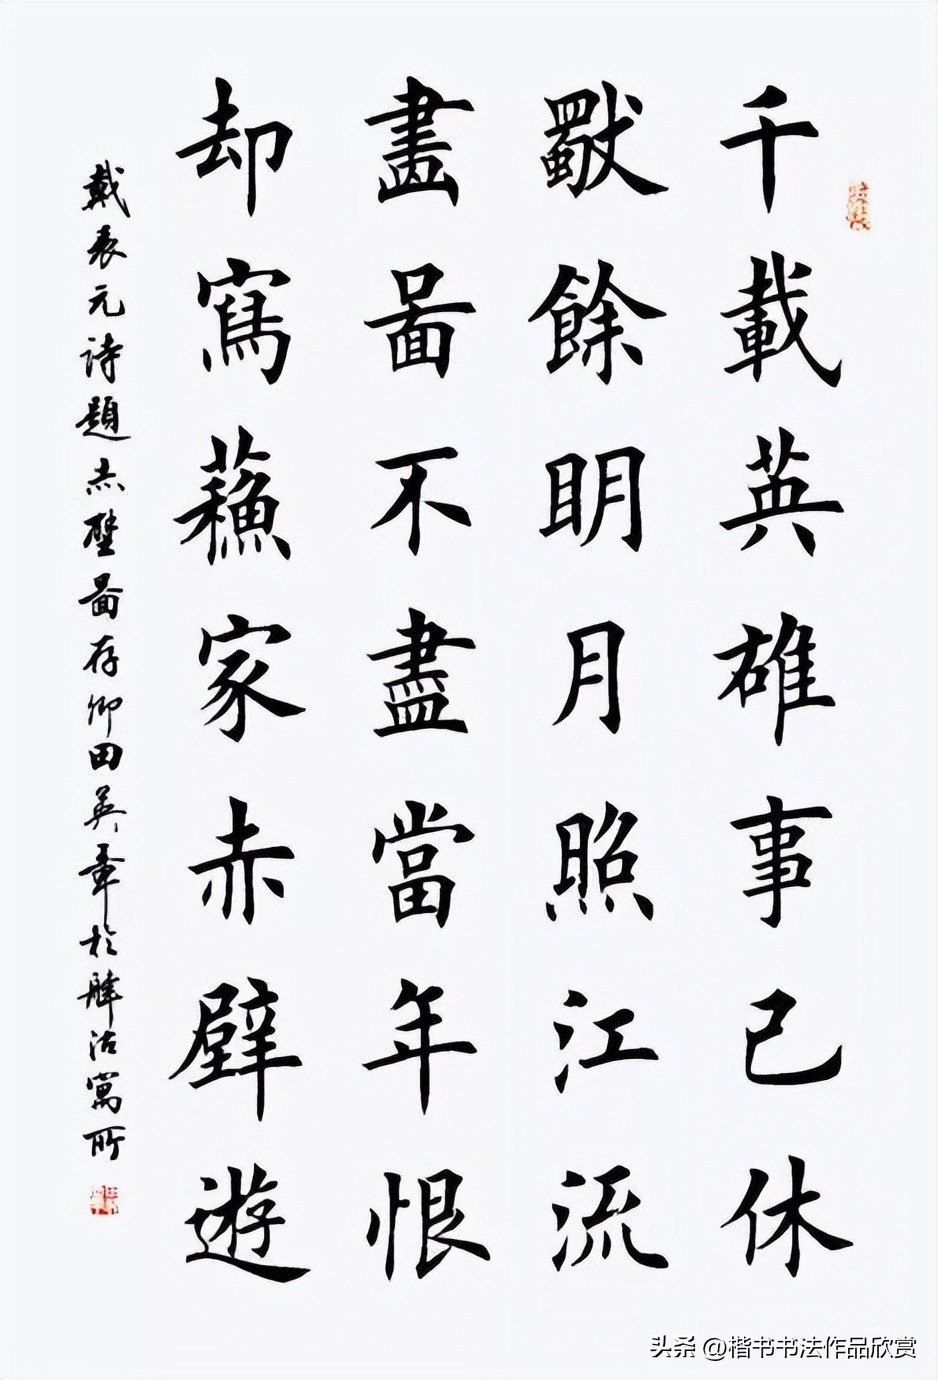 千載英雄事已休
獨餘明月照江流
畫圖不盡當年恨
却寫蘓家赤壁遊
戴表元詩題赤壁圖存卿田英章於津沽寓所
头条 @楷书书法作品欣赏